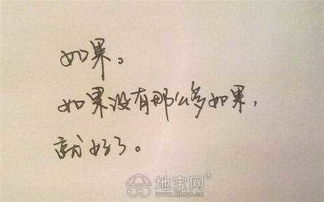 如果。
如果没有那么多如果，
就好了。
地宝网